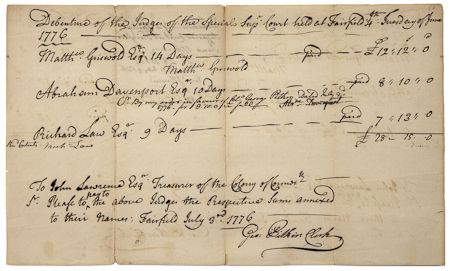 Debenture of the Judges of the Special Supr. Court held at Fairfield 4th Tuesday of June
1776
Matthw Griswold Esqr. 14 Days — paid £12"12"0
Matthw Griswold
Abraham Davenport Esqr. 10 Days — paid 8"10"0
By my order in favour of George Pitkin Dated July 3d
1776 Abrm Davenport
Richard Law Esqr. 9 Days — paid 7"13"0
Richd Law
£28"15"0
To John Lawrence Esqr. Treasurer of the Colony of Connectt.
Sr. Please to pay to the above Judges the Respective Sums annexed
to their Names: Fairfield July 3rd 1776
Geo: Pitkin Clerk